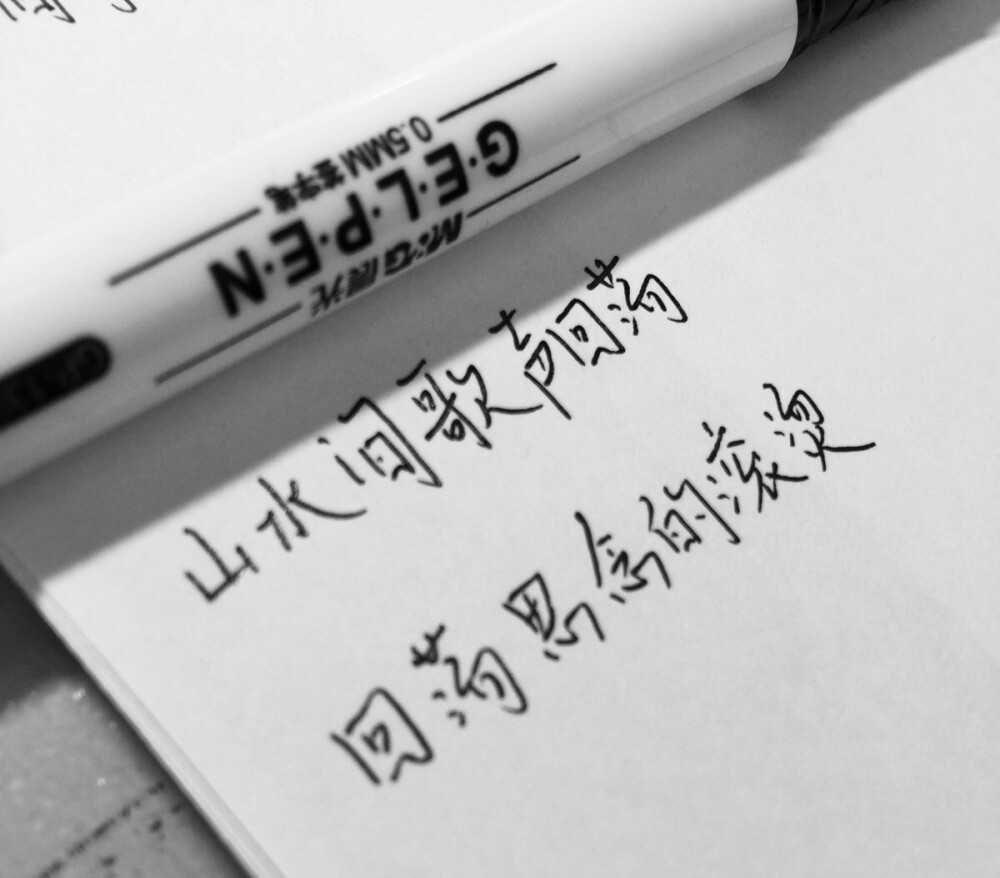 G·E·L·P·E·N
0.5MM签字笔
M&G晨光
山水间歌声回荡
回荡思念的滚烫